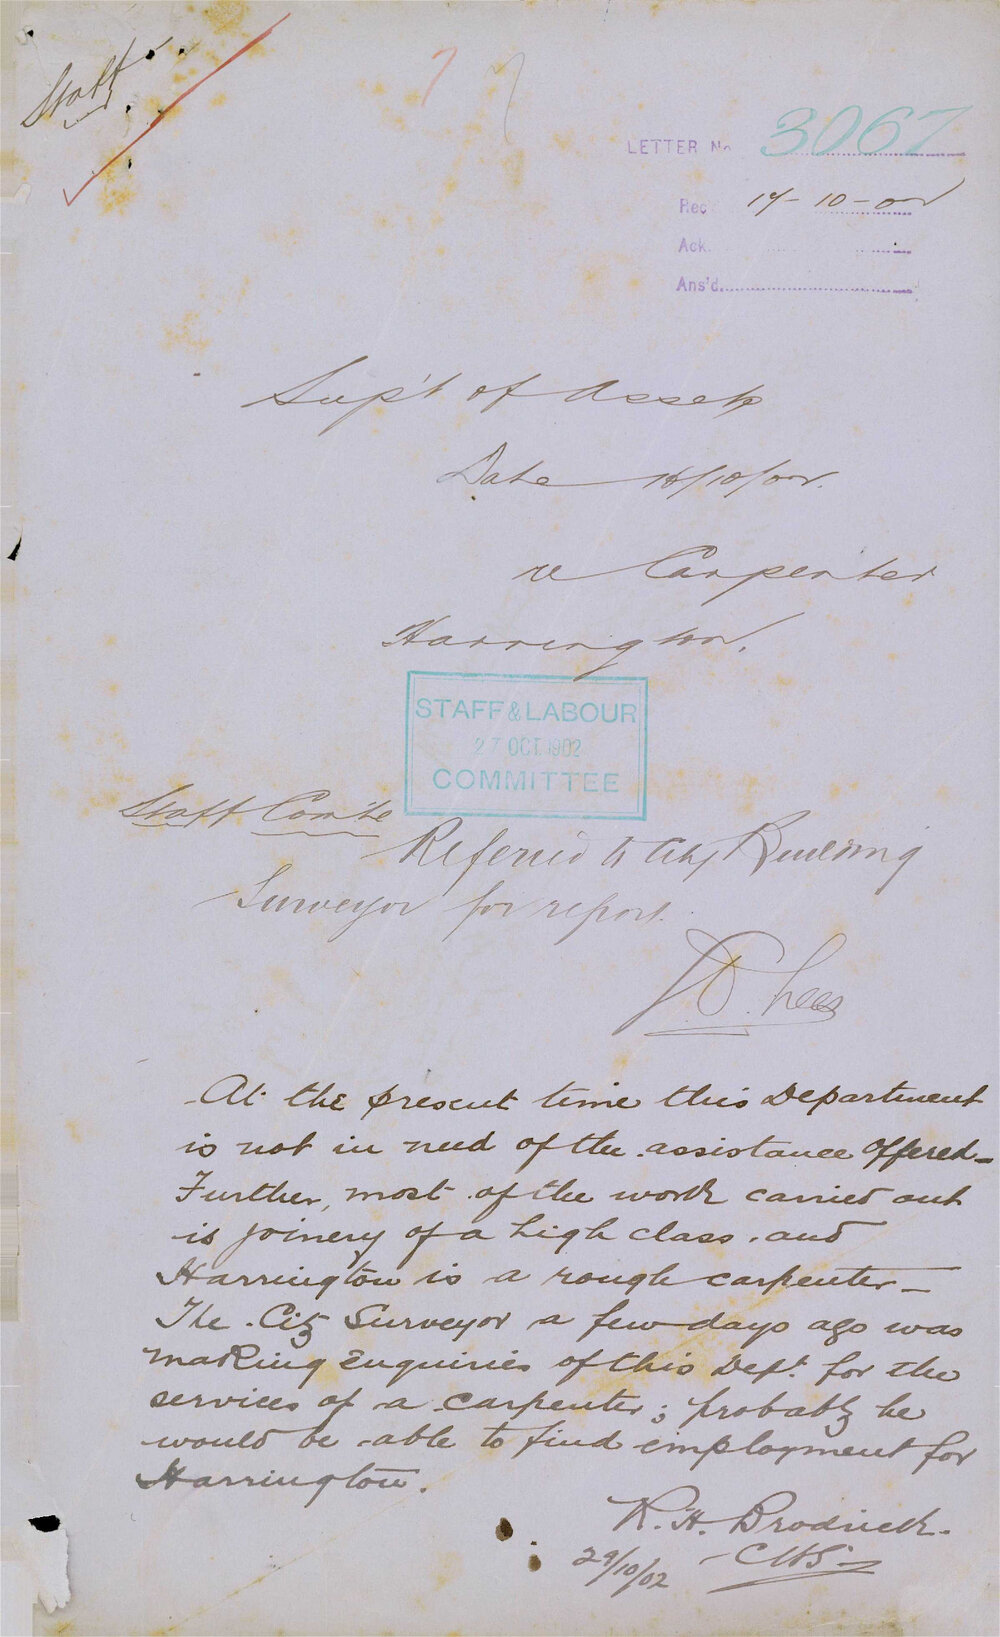 Staff
LETTER No 3067
Rec 17-10-02
Ack.
Ans'd
Sup't of Assets
Date 16/10/02.
re Carpenter
Harrington.
STAFF & LABOUR
27 OCT. 1902
COMMITTEE
Staff Com'tee
Referred to City Building
Surveyor for report.
Lees
At the present time this Department
is not in need of the assistance offered_
Further, most of the work carried out
is joinery of a high class and
Harrington is a rough carpenter_
The City Surveyor a few days ago was
making enquiries of this Dept. for the
services of a carpenter; probably he
would be able to find employment for
Harrington.
R. H. Brodrick.
29/10/02 CBS